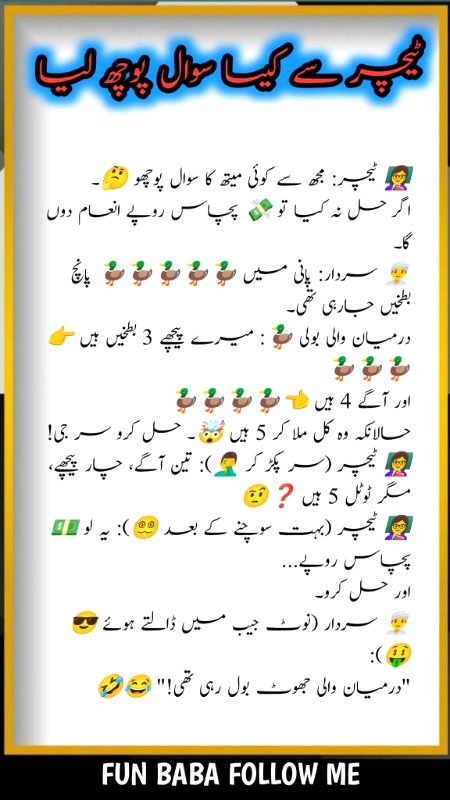 ٹیچر سے کیسا سوال پوچھ لیا
👩‍🏫 ٹیچر: مجھ سے کوئی میتھ کا سوال پوچھو 🤔۔
اگر حل نہ کیا تو 💸 پچاس روپے انعام دوں
گا۔
👳‍♂️ سردار: پانی میں 🦆🦆🦆🦆🦆 پانچ
بطخیں جارہی تھی۔
درمیان والی بولی 🦆: میرے پیچھے 3 بطخیں ہیں 👉
🦆🦆🦆
اور آگے 4 ہیں 👈🦆🦆🦆🦆
حالانکہ وہ کل ملا کر 5 ہیں 🤯۔ حل کرو سر جی!
👩‍🏫 ٹیچر (سر پکڑ کر 🤦‍♂️): تین آگے، چار پیچھے،
مگر ٹوٹل 5 ہیں ❓🤨
👩‍🏫 ٹیچر (بہت سوچنے کے بعد 😵‍💫): یہ لو 💵
پچاس روپے...
اور حل کرو۔
👳‍♂️ سردار (نوٹ جیب میں ڈالتے ہوئے 😎
🤑):
"درمیان والی جھوٹ بول رہی تھی!" 😂🤣
FUN BABA FOLLOW ME